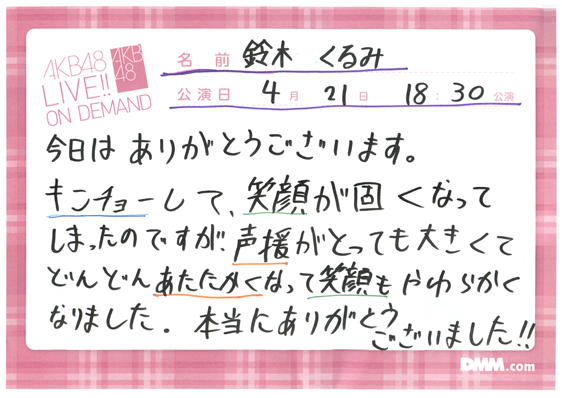 AKB48
LIVE!!
ON DEMAND
AKB
48
名前 鈴木 くるみ
公演日 4月 21日 18:30公演
今日は ありがとうございます。
キンチョーして、笑顔が固くなって
しまったのですが、声援がとっても大きくて
どんどんあたたかくなって笑顔もやわらかく
なりました。本当にありがとう
ございました!!
DMM.com